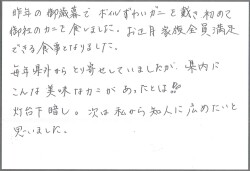 昨年の御歳暮でボイルずわいガニを戴き初めて
御社のカニを食いました。お正月家族全員満足
できる食事となりました。
毎年県外からとり寄せていましたが、県内に
こんな美味なカニがあったとは!!
灯台下暗し。次は私から知人に広めたいと
思いました。